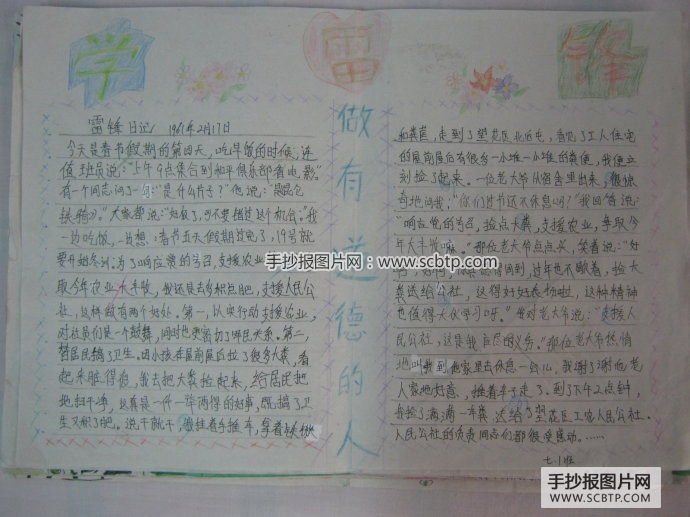 学 雷 锋
做有道德的人
雷锋日记 1961年2月17日
今天是春节假期的第四天，吃早饭的时候，连
值班员说："上午9点集合到和平俱乐部看电影。"
有一个同志问了一句："是什么片子？"他说："是昆仑
铁骑》。"大家都说："好极了，可不要错过这个机会。"我
一边吃饭，一边想：春节五天假期过完了，19号就
要开始冬训。为了响应党的号召，支援农业
取今年农业大丰收，我还是去多积点肥，支援人民公
社，这样做有两个好处。第一，以实行动支援农业，
对社员们是一个鼓舞，同时也更密切了军民关系。第二，
替居民搞了卫生。因小孩在屋前屋后拉了很多大粪，看
起来脏得很，我去把大粪捡起来，给居民把
地扫干净，这真是一件一举两得的好事，既搞了卫
生又积了肥。说干就干，我推着手推车，拿着铁锹
和粪筐，走到了望花区北后屯，看见了工人住宅
的屋前屋后有很多一小堆一小堆的粪便，我便立
刻捡了起来。一位老大爷从宿舍里出来，很惊
奇地问我："你们过节还不休息吗？"我回答说：
"响应党的号召，捡点大粪，支援农业，争取今
年大丰收嘛。"那位老大爷点点头，笑着说："好
得周到，过年也不歇着，捡大
粪送给公社，这得好好表扬啦，这种精神
也值得大伙学习呀。"我对老大爷说："支援人
民公社，这是我自己的义务。"那位老大爷热情
地叫我到他家里去休息一会儿，我谢了谢他老
人家的好意，推着车子走了。到了下午2点钟，
我捡了满满一车粪，送给了望花区工农人民公社。
人民公社的负责同志们都很受感动。……
七.1班
手抄报图片网：www.scbtp.com
手抄报图片网
WWW.SCBTP.COM